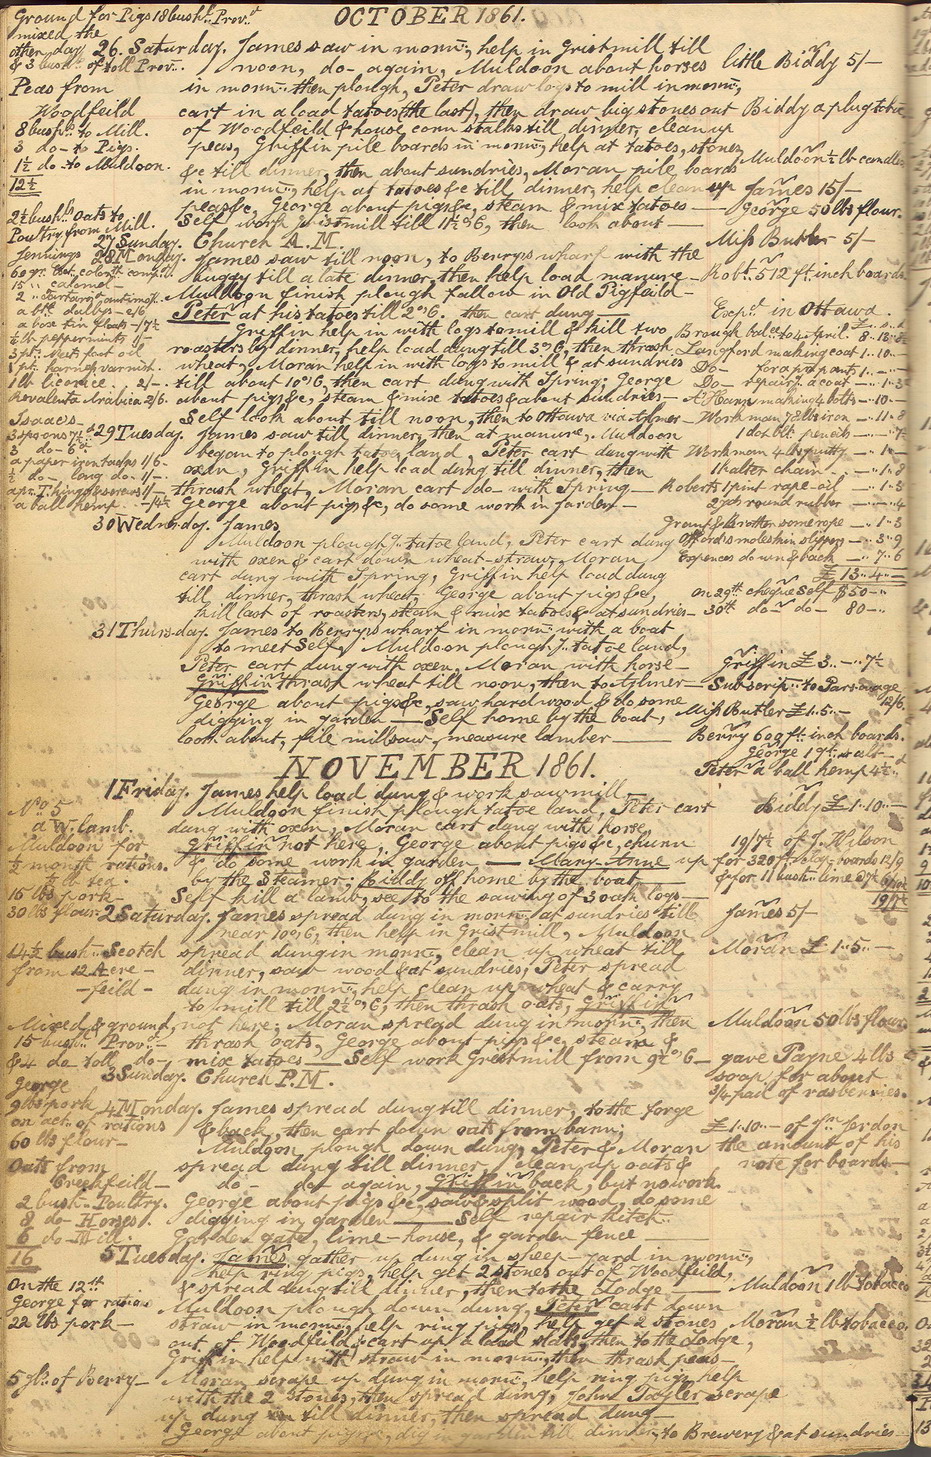 OCTOBER 1861.
Ground for Pigs 18 bushls. Prov.r
mixed the
other day
& 3 bushls of toll Prov..
Peas from
Woodfeild
8 bushls to Mill.
3 do - to Pigs.
1½ do - to Muldoon.
12½
26. Saturday. James saw in mornn; help in Gristmill till
noon, do - again, Muldoon about horses
in mornn: then plough, Peter draw logs to mill in mornn;
cart in a load tatoes (the last), then draw big stones out
of Woodfeild & house, corn stalks till dinner, clean up
peas, Griffin pile boards in mornn; help at tatoes, stones
&c till dinner, then about sundries, Moran pile boards
in mornn: help at tatoes &c till dinner, help clean up
peas &c, George about pigs &c, steam & mix tatoes —
Self work Gristmill till 1½ o'6, then look about —
little Biddy 5/—
Biddy a plug tobc
Muldoon ½ lb candles
James 15/—
George 50 lbs flour.
Miss Butler 5/—
2½ bushls oats to
Poultry from Mill.
27 Sunday. Church A.M.
Jennings
28 Monday. James saw till noon, to Berrys wharf with the
buggy till a late dinner, then help load manure —
Muldoon finish plough fallow in Old Pigfeild —
Peter at his tatoes till 2 o'6. then cart dung —
Griffin help in with logs to mill & kill two
roasters by dinner, help load dung till 3 o'6, then thrash
wheat, Moran help in with logs to mill & at sundries
till about 10 o'6, then cart dung with Spring; George
about pigs &c, steam & mix tatoes & about sundries —
Self look about till noon, then to Ottawa via Aylmer —
15 " calomel —
a btl dalbys — 2/6
½ lb peppermints 1/—
3 pts. Neats foot oil
1 pt. harness varnish.
1 lb licorice. 2/—
Revalenta Arabica 2/6.
Robt. 512 ft inch boards
Exps. in Ottawa.
Langford making coat 1..10..—
Do — for a pr pants 1..—
Do — repairg a coat — ..1..3
Workman 78 lbs iron — ..11..8
1 dot blk pencils — — ..7½
Workman 4 lbs putty — ..1..—
1 halter chain — ..1..8
Roberts 1 pint rape-oil — ..1..3
2 yds round rubber — — ..4
Isaacs —
29 Tuesday. James saw till dinner, then at manure, Muldoon
began to plough tatoe land, Peter cart dung with
oxen, Griffin help load dung till dinner, then
thrash wheat, Moran cart do - with Spring —
George about pigs &c, do some work in Garden —
a paper iron tacks 1/6 —
½ do — long do - 1/—
a ball hemp — 1/4½
30 Wednesday. James
Muldoon plough tatoe land, Peter cart dung
with oxen & cart down wheat-straw, Moran
cart dung with Spring, Griffin help load dung
till dinner, thrash wheat, George about pigs &c,
kill last of roasters, steam & mix tatoes & at sundries —
some rope — ..1..3
moleskin slippers — ..3..9
Expences down & back — ..7..6
£ 13..4..—
on 29th cheque Self $50 —
30th do ~ do — 80 —
31 Thursday. James to Berrys wharf in mornn: with a boat
to meet Self, Muldoon plough tatoe land,
Peter cart dung with oxen, Moran with horse —
Griffin thrash wheat till noon, then to Aylmer —
George about pigs &c, saw hard wood & do some
digging in garden — Self home by the boat,
look about, file mill saw, measure lumber —
Griffin £3..—..7½
Subscrip: to Parsonage
12/6.
Miss Butler £1..5..—
Berry 600 ft: inch boards.
George 1 qt: salt —
Peter a ball hemp 4½
NOVEMBER 1861.
No 5
a W. lamb.
Muldoon for
½ month rations.
½ lb tea.
15 lbs pork —
30 lbs flour.
1 Friday. James help load dung & work sawmill
Muldoon finish plough tatoe land, Peter cart
dung with oxen, Moran cart dung with horse
Griffin not here, George about pigs &c, churn
& do some work in garden — Mary-Anne up
by the Steamer; Biddy off home by the boat —
Self kill a lamb, see to the sawing of 3 oak logs —
Biddy £1..10..—
19/7½ of J. Wilson
for 320 ft boards 12/9
& for 11 bush. lime
19/7½
2 Saturday. James spread dung in mornn: at sundries till
near 10 o'6, then help in Gristmill, Muldoon
spread dung in mornn: clean up wheat till
dinner, saw wood & at sundries; Peter spread
dung in mornn: help clean up wheat & carry
to mill till 2½ o'6, then thrash oats, Griffin
not here, Moran spread dung in mornn: then
thrash oats, George about pigs &c, steam &
mix tatoes — Self work Gristmill from 9½ o'6 —
14½ bush. Scotch
from 12 Acre —
— feild —
Mixed & ground
15 bush. Prov. —
& 4 do toll do -
James 5/—
Moran £1..5..—
Muldoon 50 lbs flour.
gave Payne 4 lbs
soap for about
¾ pail of rasberries.
3 Sunday. Church P.M.
George
9 lbs pork
on act. of rations
60 lbs flour —
Oats from
Creekfeild —
2 bush. Poultry.
8 do - Horses.
6 do - Mill.
16
4 Monday. James spread dung till dinner, to the forge
& back, then cart down oats from barn;
Muldoon plough down dung, Peter & Moran
spread dung till dinner, clean up oats &
do — do - again, Griffin back, but no work.
George about pigs &c, saw & split wood, do some
digging in garden — Self repair kitch:
Garden gate, lime-house, & garden fence —
£1..10..— of Jno Jordon
the amount of his
note for boards —
5 Tuesday. James gather up dung in sheep-yard in mornn;
help ring pigs, help get 2 stones out of Woodfeild,
& spread dung till dinner, then to the Lodge —
Muldoon plough down dung, Peter cart down
straw in mornn: help ring pigs, help get 2 stones
out of Woodfeild & cart up a load slabs, then to the Lodge,
Griffin help with straw in mornn: then thrash peas —
Moran scrape up dung in mornn: help ring pigs, help
with the 2 stones, then spread dung, John Tayler scrape
up dung till dinner, then spread dung —
George about pigs &c, dig in garden till dinner, to Brewery & at sundries —
On the 12th
George for rations
22 lbs pork —
5 gls. of Berry —
Muldoon 1 lb tobacco
Moran ½ lb tobacco.